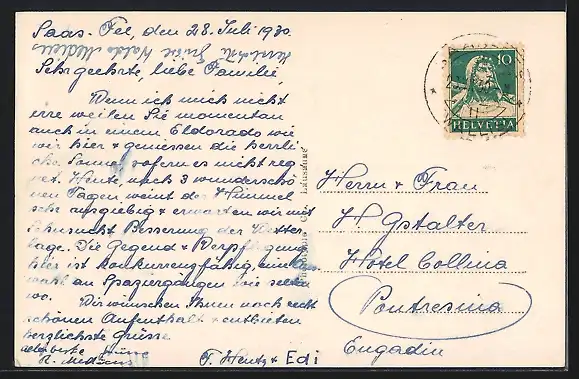 Saas-Fee, den 28. Juli 1930.
Sehrgeehrte, liebe Familie,
Wenn ich mich nicht
irre weilen Sie momentan
auch in einem Eldorado wie
wir hier & geniessen die herrli-
che Sonne, sofern es nicht reg-
net. Heute, nach 3 wunderschö-
nen Tagen, weint der Himmel
sehr ausgiebig & erwarten wir mit
Sehnsucht Besserung der Wetter-
lage. Die Gegend & Verpflegung
hier ist konkurrenzfähig, eine Aus-
wahl an Spaziergängen wie selten
wo.
Wir wünschen Ihnen noch recht
schönen Aufenthalt & entbieten
herzlichste Grüsse
F. Hentz & Edi
10
HELVETIA
Herrn & Frau
H. Gstalter
Hôtel Collina
Pontresina
Engadin